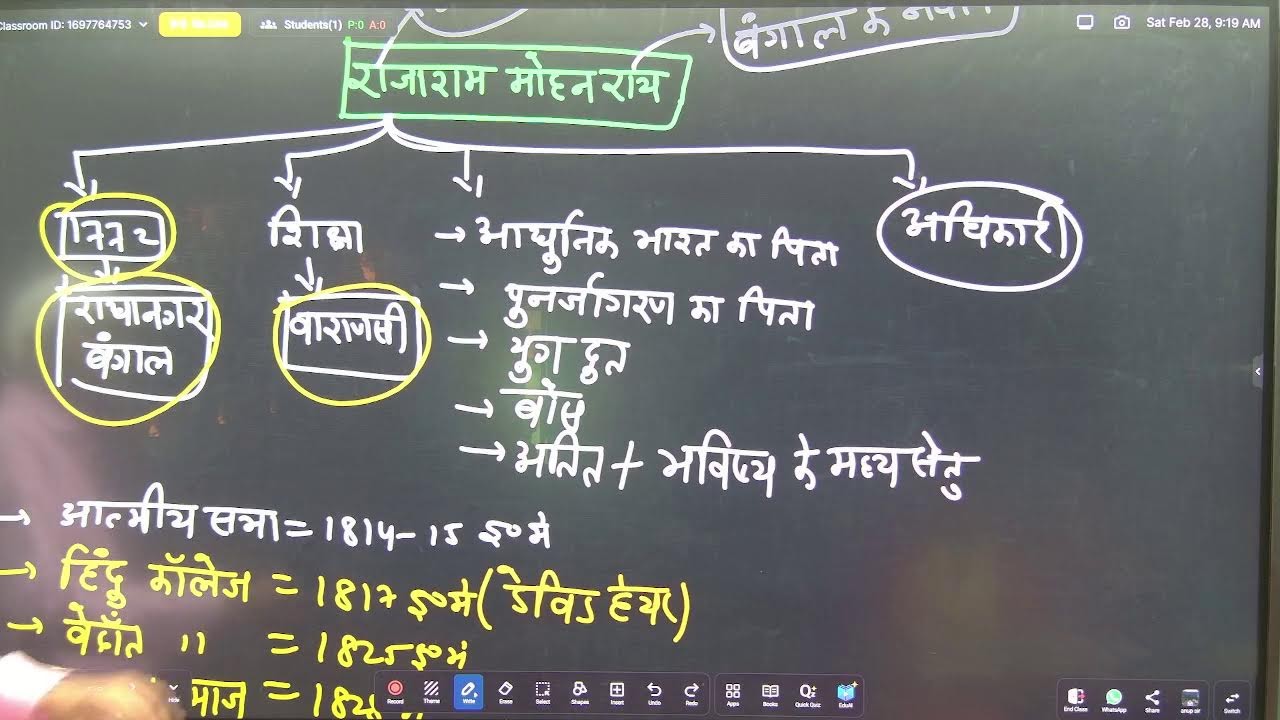 Classroom ID: 1697764753
Students(1) P:0 A:0
Sat Feb 28, 9:19 AM
बंगाल के
राजाराम मोहन राय
1772
राधानगर
बंगाल
शिक्षा
वाराणसी
→ आधुनिक भारत का पिता
→ पुनर्जागरण का पिता
→ युग दुत
→ बोस
→ अतित + भविष्य के मध्य सेतु
अधिकारी
→ आत्मीय सभा = 1814-15 ई० मे
→ हिंदु कॉलेज = 1817 ई० मे (डेविड हेयर)
→ वेदाँत " = 1825 ई० में
माज = 182
Record Theme Write Erase Select Shapes Insert Undo Redo Apps Books Quick Quiz EduAI
End Class WhatsApp Share anup sir Switch